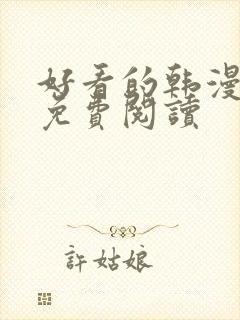 好看的韩漫
免費閱讀
許姑娘